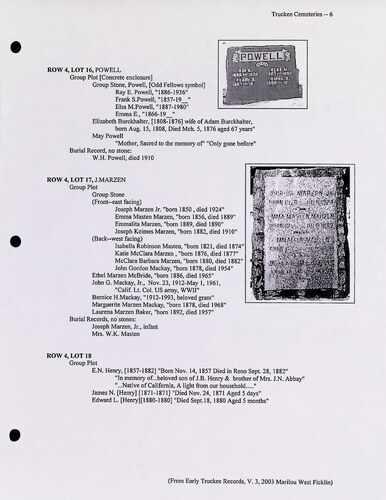 Truckee Cemeteries -- 6
ROW 4, LOT 16, POWELL
Group Plot [Concrete enclosure]
Group Stone, Powell, [Odd Fellows symbol]
Ray E. Powell, "1886-1936"
Frank S.Powell, "1857-19__"
Elsa M.Powell, "1887-1980"
Emma E., "1866-19__"
Elizabeth Burckhalter, [1808-1876] wife of Adam Burckhalter,
born Aug. 15, 1808, Died Mch. 5, 1876 aged 67 years"
May Powell
"Mother, Sacred to the memory of" "Only gone before"
Burial Record, no stone:
W.H. Powell, died 1910
POWELL
ROW 4, LOT 17, J.MARZEN
Group Plot
Group Stone
(Front--east facing)
Joseph Marzen Jr. "born 1850 , died 1924"
Emma Masten Marzen, "born 1856, died 1889"
Emmalita Marzen, "born 1889, died 1890"
Joseph Keimes Marzen, "born 1882, died 1910"
(Back--west facing)
Isabella Robinson Masten, "born 1821, died 1874"
Katie McClara Marzen , "born 1876, died 1877"
McClara Barbara Marzen, "born 1880, died 1882"
John Gordon Mackay, "born 1878, died 1954"
Ethel Marzen McBride, "born 1886, died 1965"
John G. Mackay, Jr., Nov. 23, 1912-May 1, 1961,
"Calif. Lt. Col. US army, WWII"
Bernice H.Mackay, "1912-1993, beloved gram"
Marguerite Marzen Mackay, "born 1878, died 1968"
Laurena Marzen Baker, "born 1892, died 1957"
Burial Records, no stones:
Joseph Marzen, Jr., infant
Mrs. W.K. Masten
ROW 4, LOT 18
Group Plot
E.N. Henry, [1857-1882] "Born Nov. 14, 1857 Died in Reno Sept. 28, 1882"
"In memory of...beloved son of J.B. Henry & brother of Mrs. J.N. Abbay"
"...Native of California, A light from our household....."
James N. [Henry] [1871-1871] "Died Nov. 24, 1871 Aged 5 days"
Edward L. [Henry][1880-1880] "Died Sept.18, 1880 Aged 5 months"
(From Early Truckee Records, V. 3, 2003 Marilou West Ficklin)